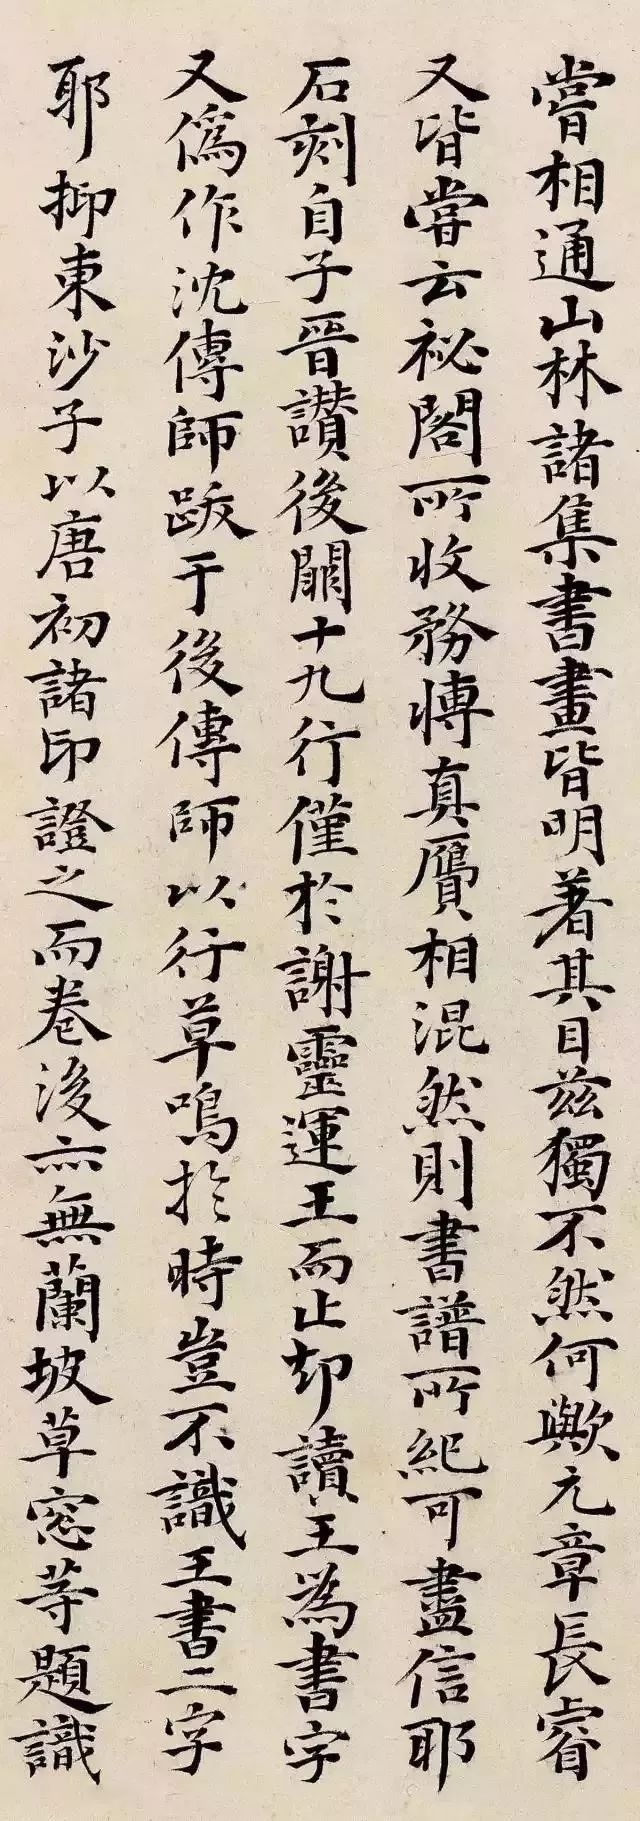 嘗相通山林諸集書畫皆明著其目茲獨不然何歟元章長睿
又皆嘗云祕閣所收務博真贋相混然則書譜所紀可盡信耶
石刻自子晉讃後闕十九行僅於謝靈運王而止却讀王為書字
又偽作沈傳師跋于後傳師以行草鳴於時豈不識王書二字
耶抑東沙子以唐初諸印證之而卷後亦無蘭坡草窓等題識